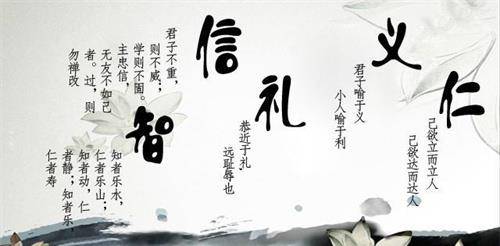 仁
己欲立而立人
己欲达而达人
义
君子喻于义
小人喻于利
礼
恭近于礼，
远耻辱也
信
君子不重，
则不威；
学则不固。
主忠信，
无友不如己
者。过，则
勿禅改
智
知者乐水，
仁者乐山；
知者动，仁
者静；知者乐，
仁者寿